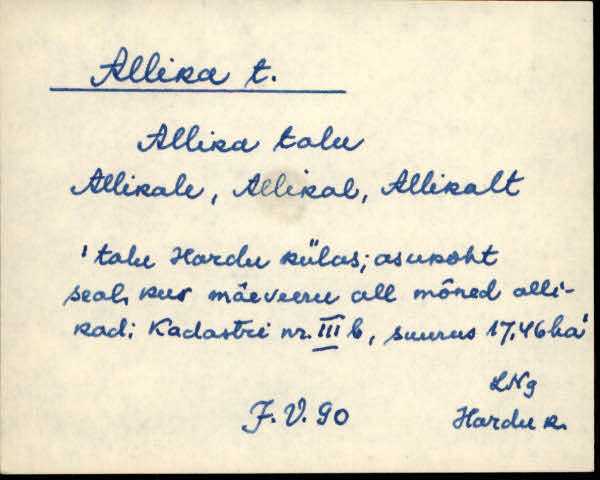 Allika t.
Allika talu
Allikale, Allikal, Allikalt
'talu Hardu külas; asukoht
seal, kus mäeveeru all mõned alli-
kad; Kadastri nr. III b, suurus 17,46 ha'
LNg
J. V. 90
Hardu k.